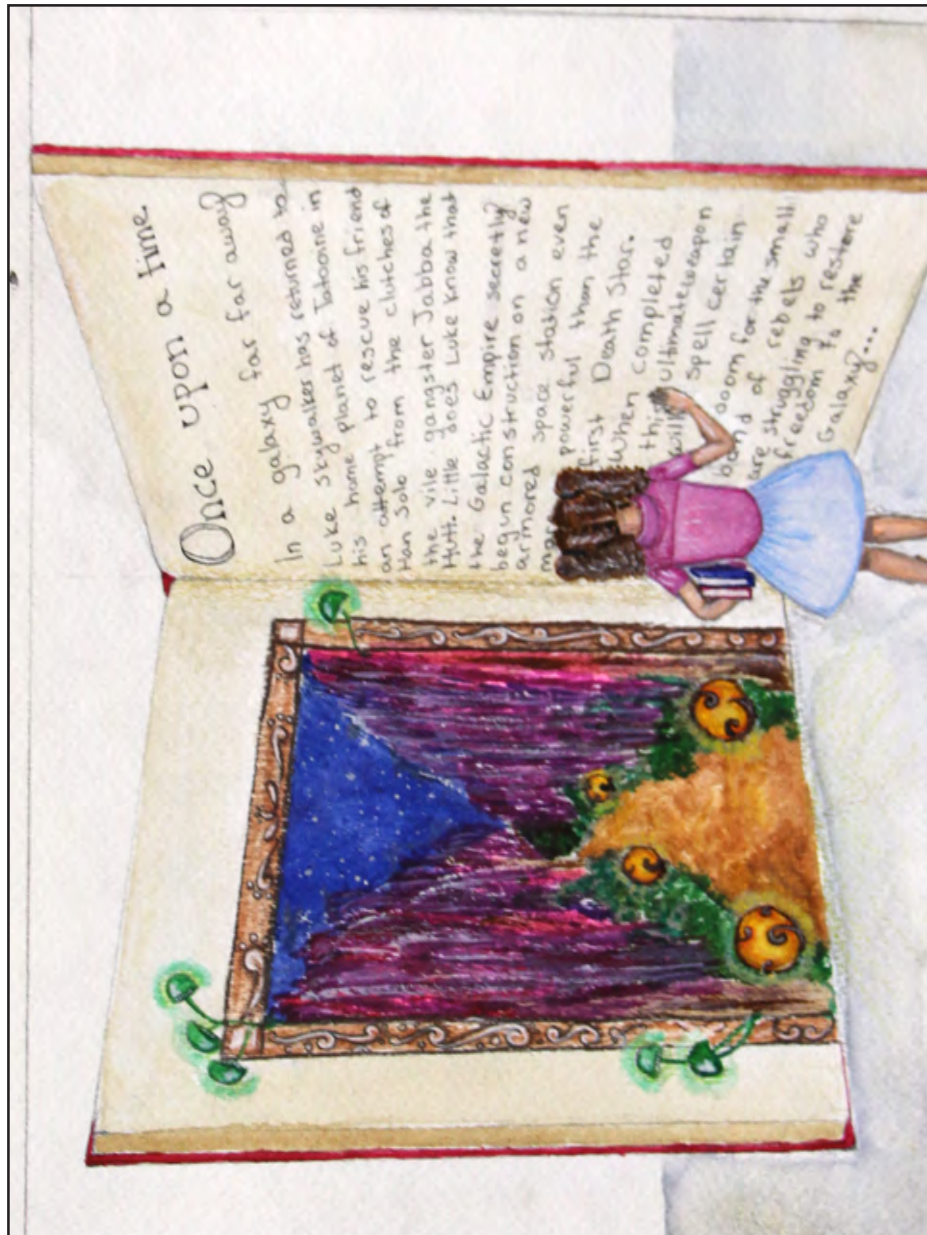 Once upon a time
In a galaxy far far away
Luke skywalker has returned to
his home planet of Tatooine in
an attempt to rescue his friend
Han Solo from the clutches of
the vile gangster Jabba the
Hutt. Little does Luke know that
the Galactic Empire secretly
begun construction on a new
armored space station even
powerful than the
first Death Star.
When completed
this ultimate weapon
will spell certain
doom for the small
band of rebels who
are struggling to restore
freedom to the
Galaxy...